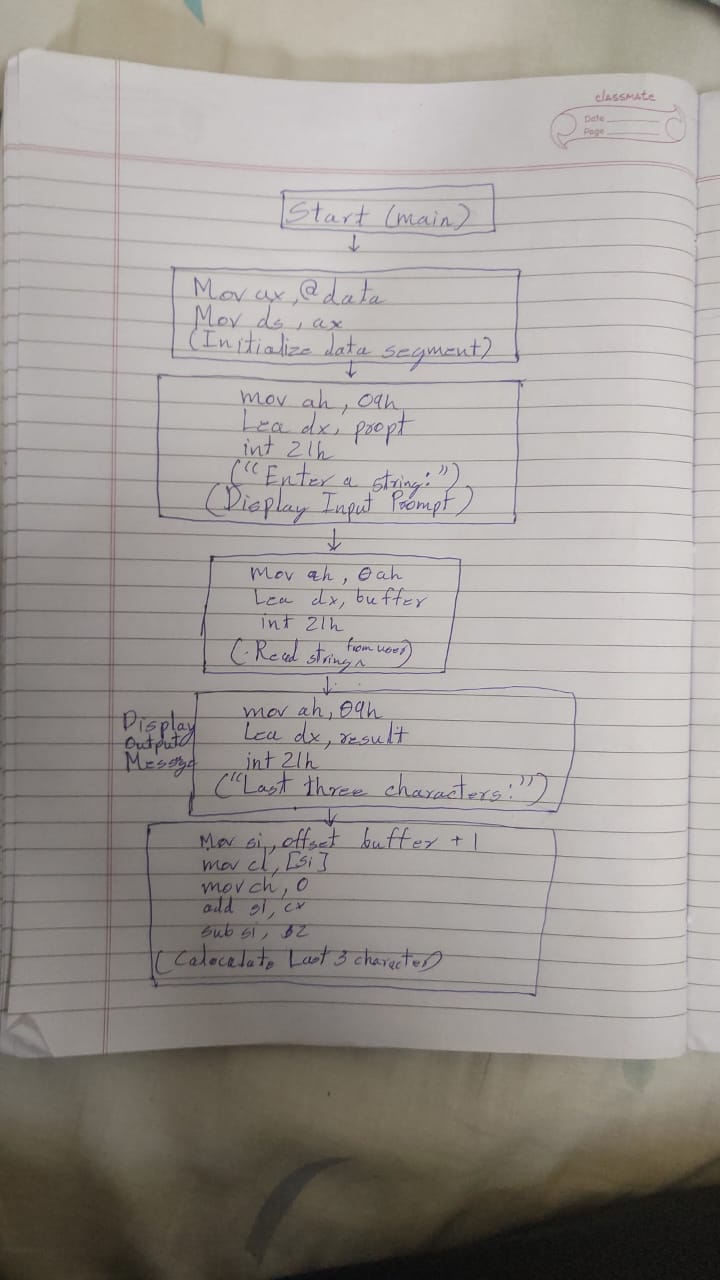 classmate
Date
Page
Start (main)
↓
Mov ax, @data
Mov ds, ax
(Initialize data segment)
↓
mov ah, 09h
Lea dx, propt
int 21h
("Enter a string:")
(Display Input Prompt)
↓
Mov ah, 0ah
Lea dx, buffer
int 21h
(Read string from user)
↓
Display
Output
Message
mov ah, 09h
Lea dx, result
int 21h
("Last three characters:")
↓
Mov si, offset buffer + 1
mov cl, [si]
mov ch, 0
add si, cx
sub si, 2
(Calocalate Last 3 character)